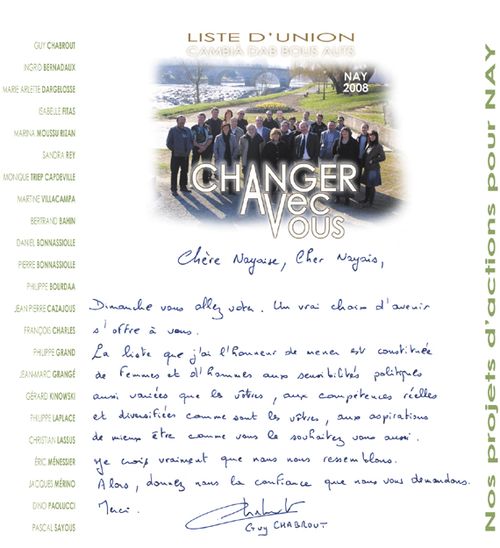 LISTE D'UNION
CAMBIA DAB BOUS AUTS
NAY
2008
CHANGER
AVec
VOUS
GUY CHABROUT
INGRID BERNADAUX
MARIE ARLETTE DARGELOSSE
ISABELLE FITAS
MARINA MOUSSU RIZAN
SANDRA REY
MONIQUE TRIEP CAPDEVILLE
MARTINE VILLACAMPA
BERTRAND BAHIN
DANIEL BONNASSIOLLE
PIERRE BONNASSIOLLE
PHILIPPE BOURDAA
JEAN PIERRE CAZAJOUS
FRANÇOIS CHARLES
PHILIPPE GRAND
JEAN-MARC GRANGÉ
GÉRARD KINOWSKI
PHILIPPE LAPLACE
CHRISTIAN LASSUS
ÉRIC MÉNESSIER
JACQUES MÉRINO
DINO PAOLUCCI
PASCAL SAYOUS
Chère Nayaise, Cher Nayais,
Dimanche vous allez voter. Un vrai choix d'avenir
s'offre à vous.
La liste que j'ai l'honneur de mener est constituée
de femmes et d'hommes aux sensibilités politiques
aussi variées que les vôtres, aux compétences réelles
et diversifiées comme sont les vôtres, aux aspirations
de mieux être comme vous le souhaitez vous aussi.
Je crois vraiment que nous nous ressemblons.
Alors, donnez nous la confiance que nous vous demandons.
Merci.
Chabrout
Guy CHABROUT
Nos projets d'actions pour NAY